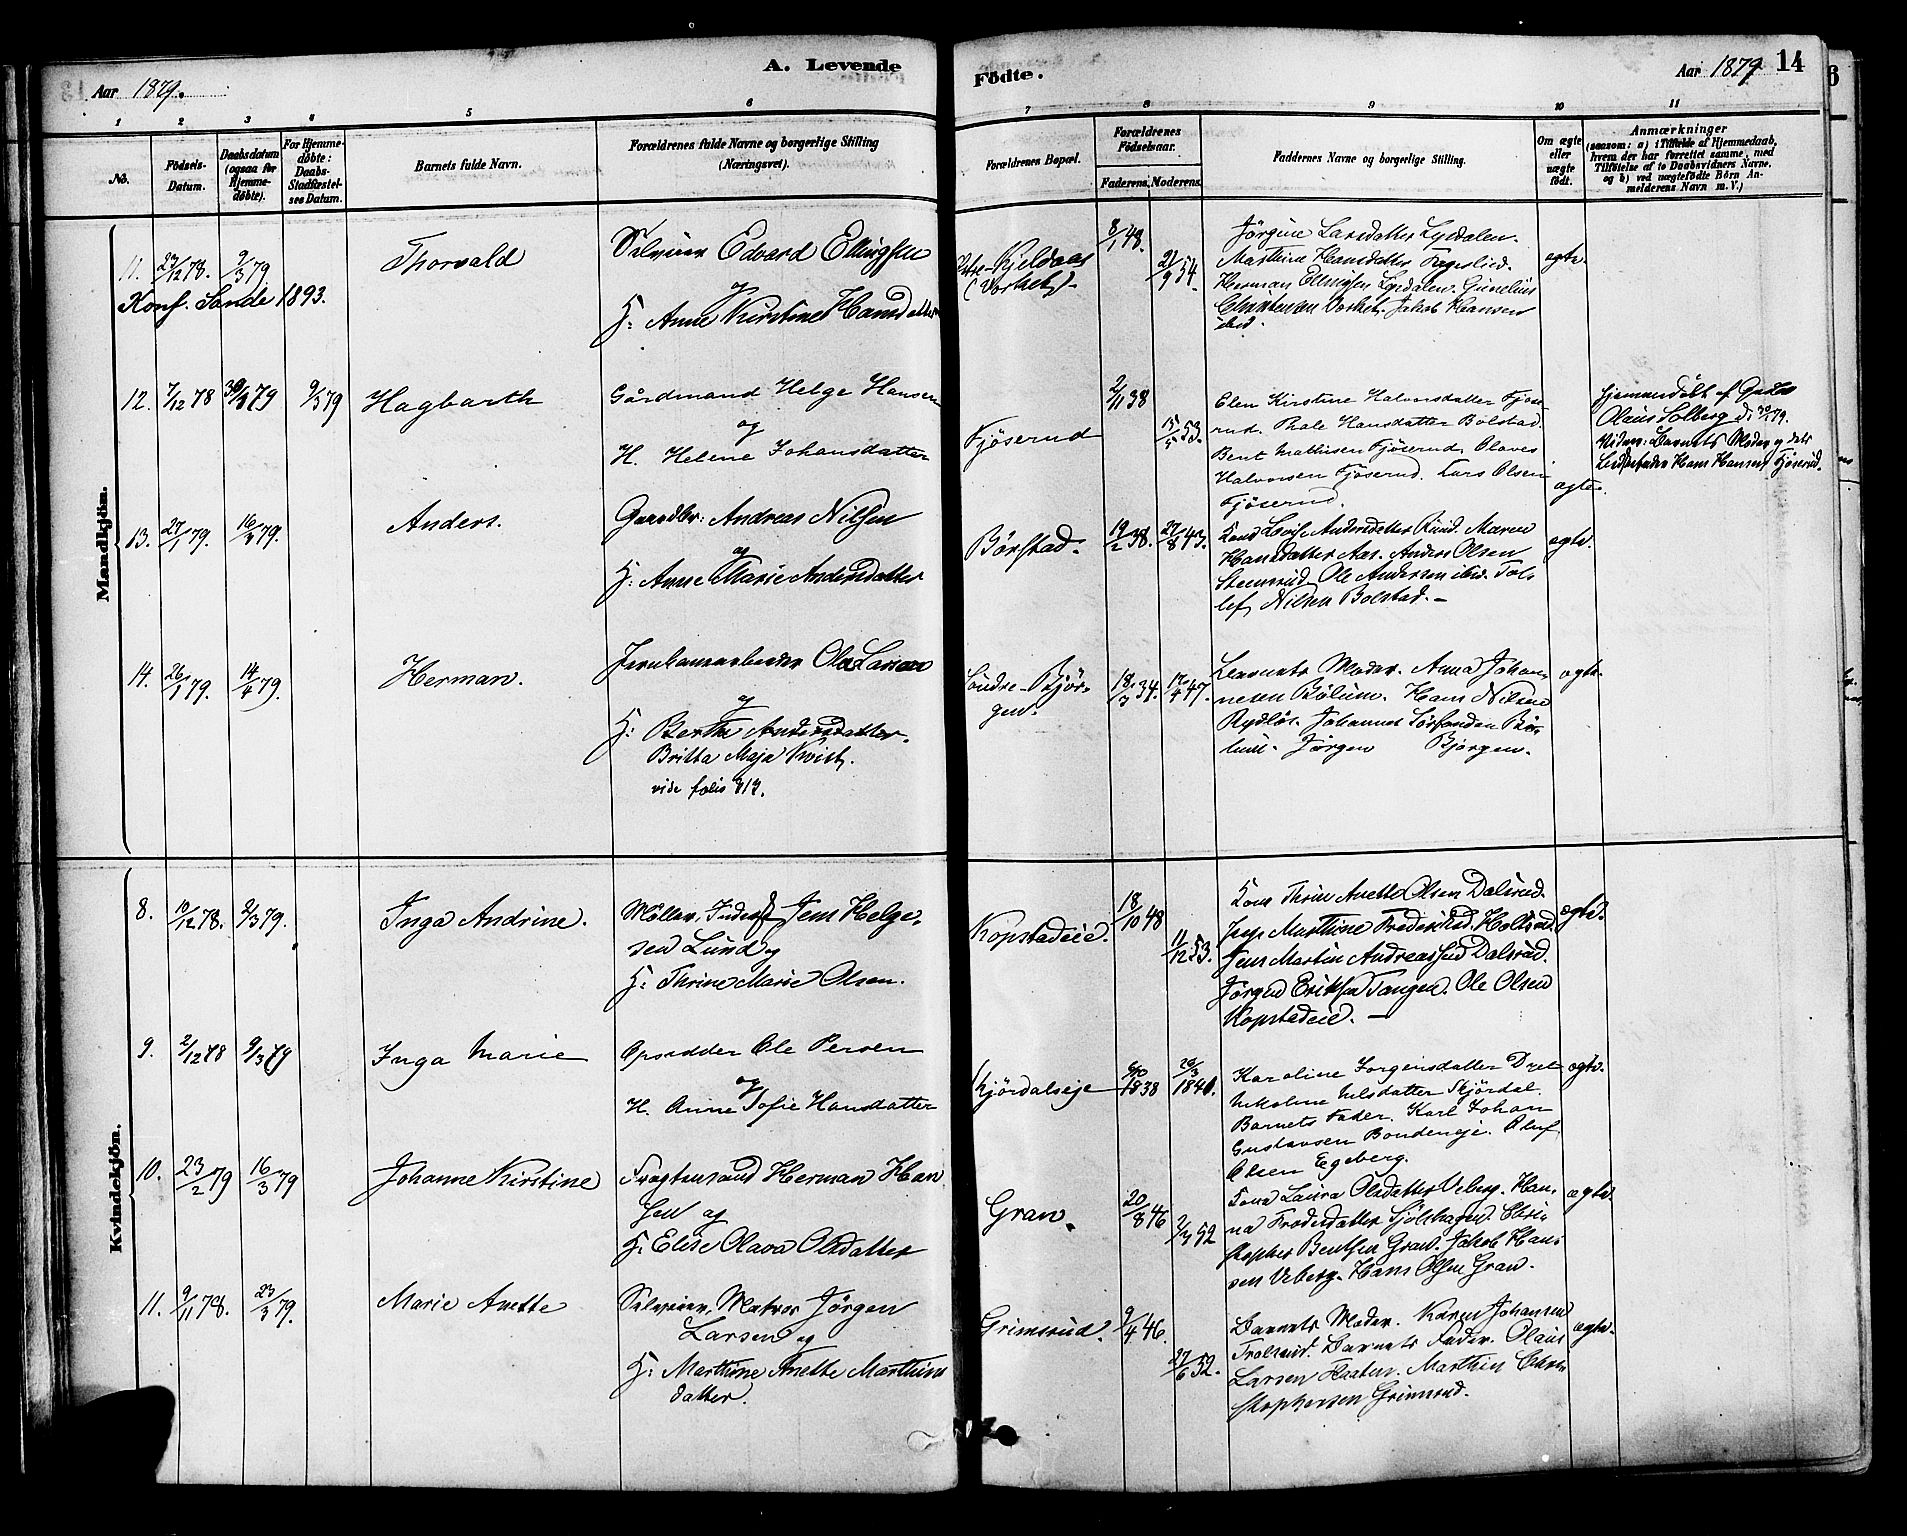 Aar 1879.
A. Levende
Födte.
Aar 1879
14
1 2 3 4 5 6 7 8 9 10 11
No.
Födsels-Datum.
Daabsdatum (ogsaa for Hjemme-döbte).
For Hjemme-döbte: Daabs-Stadfæstel-ses Datum.
Barnets fulde Navn.
Forældrenes fulde Navne og borgerlige Stilling (Næringsvei).
Forældrenes Bopæl.
Forældrenes Födselsaar.
Faderens. Moderens.
Faddernes Navne og borgerlige Stilling.
Om ægte eller uægte födt.
Anmærkninger
(saasom: a) i Tilfælde af Hjemmedaab,
hvem der har forrettet samme, med
Tilföielse af to Daabsvidners Navne,
og b) ved uægtefödte Börn An-
melderens Navn m. V.)
Mandkjön.
11. 23/12 78. 9/3 79
Konf. Sande 1893.
Thorvald
Selveier Edvard Ellingsen
og
H: Anne Kirstine Hansdatter
Kjeldaas
8/1 48.
21/9 54.
Jørgine Larsdatter Lysdalen.
Marthine Hansdatter Fageslied.
Herman Ellingsen Lysdalen. Gunelius
Christensen Jakob Hansen
ibid.
ægte
12. 7/12 78 30/3 79 9/3 79
Hagbarth
Gårdmand Helge Hansen
og
H. Helene Johansdatter
Fjöserud
2/11 38
15/5 53.
Elen Kirstine Halvorsdatter Fjöse-
rud. Thale Hansdatter Bolstad.
Bent Mathisen Fjöserud, Olaves
Halvorsen Fjöserud. Lars Olsen
Fjöserud.
ægte
Hjemmedöbt af
Olaus Solberg d.
Vidner: Barnets Moder og dets
Hans Hansen Fjøserud.
13. 27/1 79. 16/3 79.
Anders.
Gaardbr: Andreas Nilsen
og
H: Anne Marie Andersdatter
Børstad.
19/2 38. 27/8 43.
Kone Lovise Andersdatter Rud. Maren
Hansdatter Aas. Anders Olsen
Steensrud, Ole Andersen ibid. Tol-
lef Nilsen Bolstad. –
ægte.
14. 26/1 79. 14/4 79.
Herman.
Jernbanearbeider Ole Larsen
og
H: Berthe Andersdatter.
Britta Maja Kvist.
vide folio 313.
Söndre-Bjør-
gen.
18/3 34. 17/4 47.
Barnets Moder. Anna Johan-
nesen Bølum. Hans Nilsen
Rydløs. Johannes Bø-
lum. Jørgen Bjørgen.
ægte.
Kvindekjön.
8. 10/12 78. 9/3 79.
Inga Andrine.
Møller, Inderst Jens Helge-
sen Lund og
H: Thrine Marie Olsen.
Kopstadeie.
18/10 48
11/12 53.
Kone Thrine Anette Olsen Dalsrud.
Marthine Holtsrud.
Jens Martin Andreassen Dalsrud.
Jørgen Eriksen Tangen. Ole Olsen
Kopstadeie. –
ægte.
9. 2/12 78 9/3 79
Inga Marie
Opsidder Ole Persen
og
H. Anne Sofie Hansdatter
Skjördalseje
1838 26/3 1840.
Karoline Jorgensdatter Dret
Nikoline Nilsdatter Skjördal.
Barnets Fader. Karl Johan
Gustavsen Bondeneje. Oluf
Olsen Egeberg.
ægte.
10. 23/2 79 16/3 79
Johanne Kirstine
Fragtemand Herman Han-
sen og
H: Elise Olava Olsdatter
Gran.
20/8 46
2/4 52
Kone Laura Olsdatter Veberg. Han-
na Frodesdatter Sjølshagen. Chri-
stopher Bentsen Gran. Jakob Han-
sen Veberg. Hans Olsen Gran.
ægte.
11. 9/11 78. 23/3 79.
Marie Anette
Selveier, Matros Jörgen
Larsen og
H: Marthine Anette Marthins-
datter.
Grimsrud.
9/4 46.
27/6 52.
Barnets Moder. Karen Johansen
Trolsrud. Barnets Fader. Olaus
Larsen Marthin Chri-
stophersen Grimsrud.
ægte.